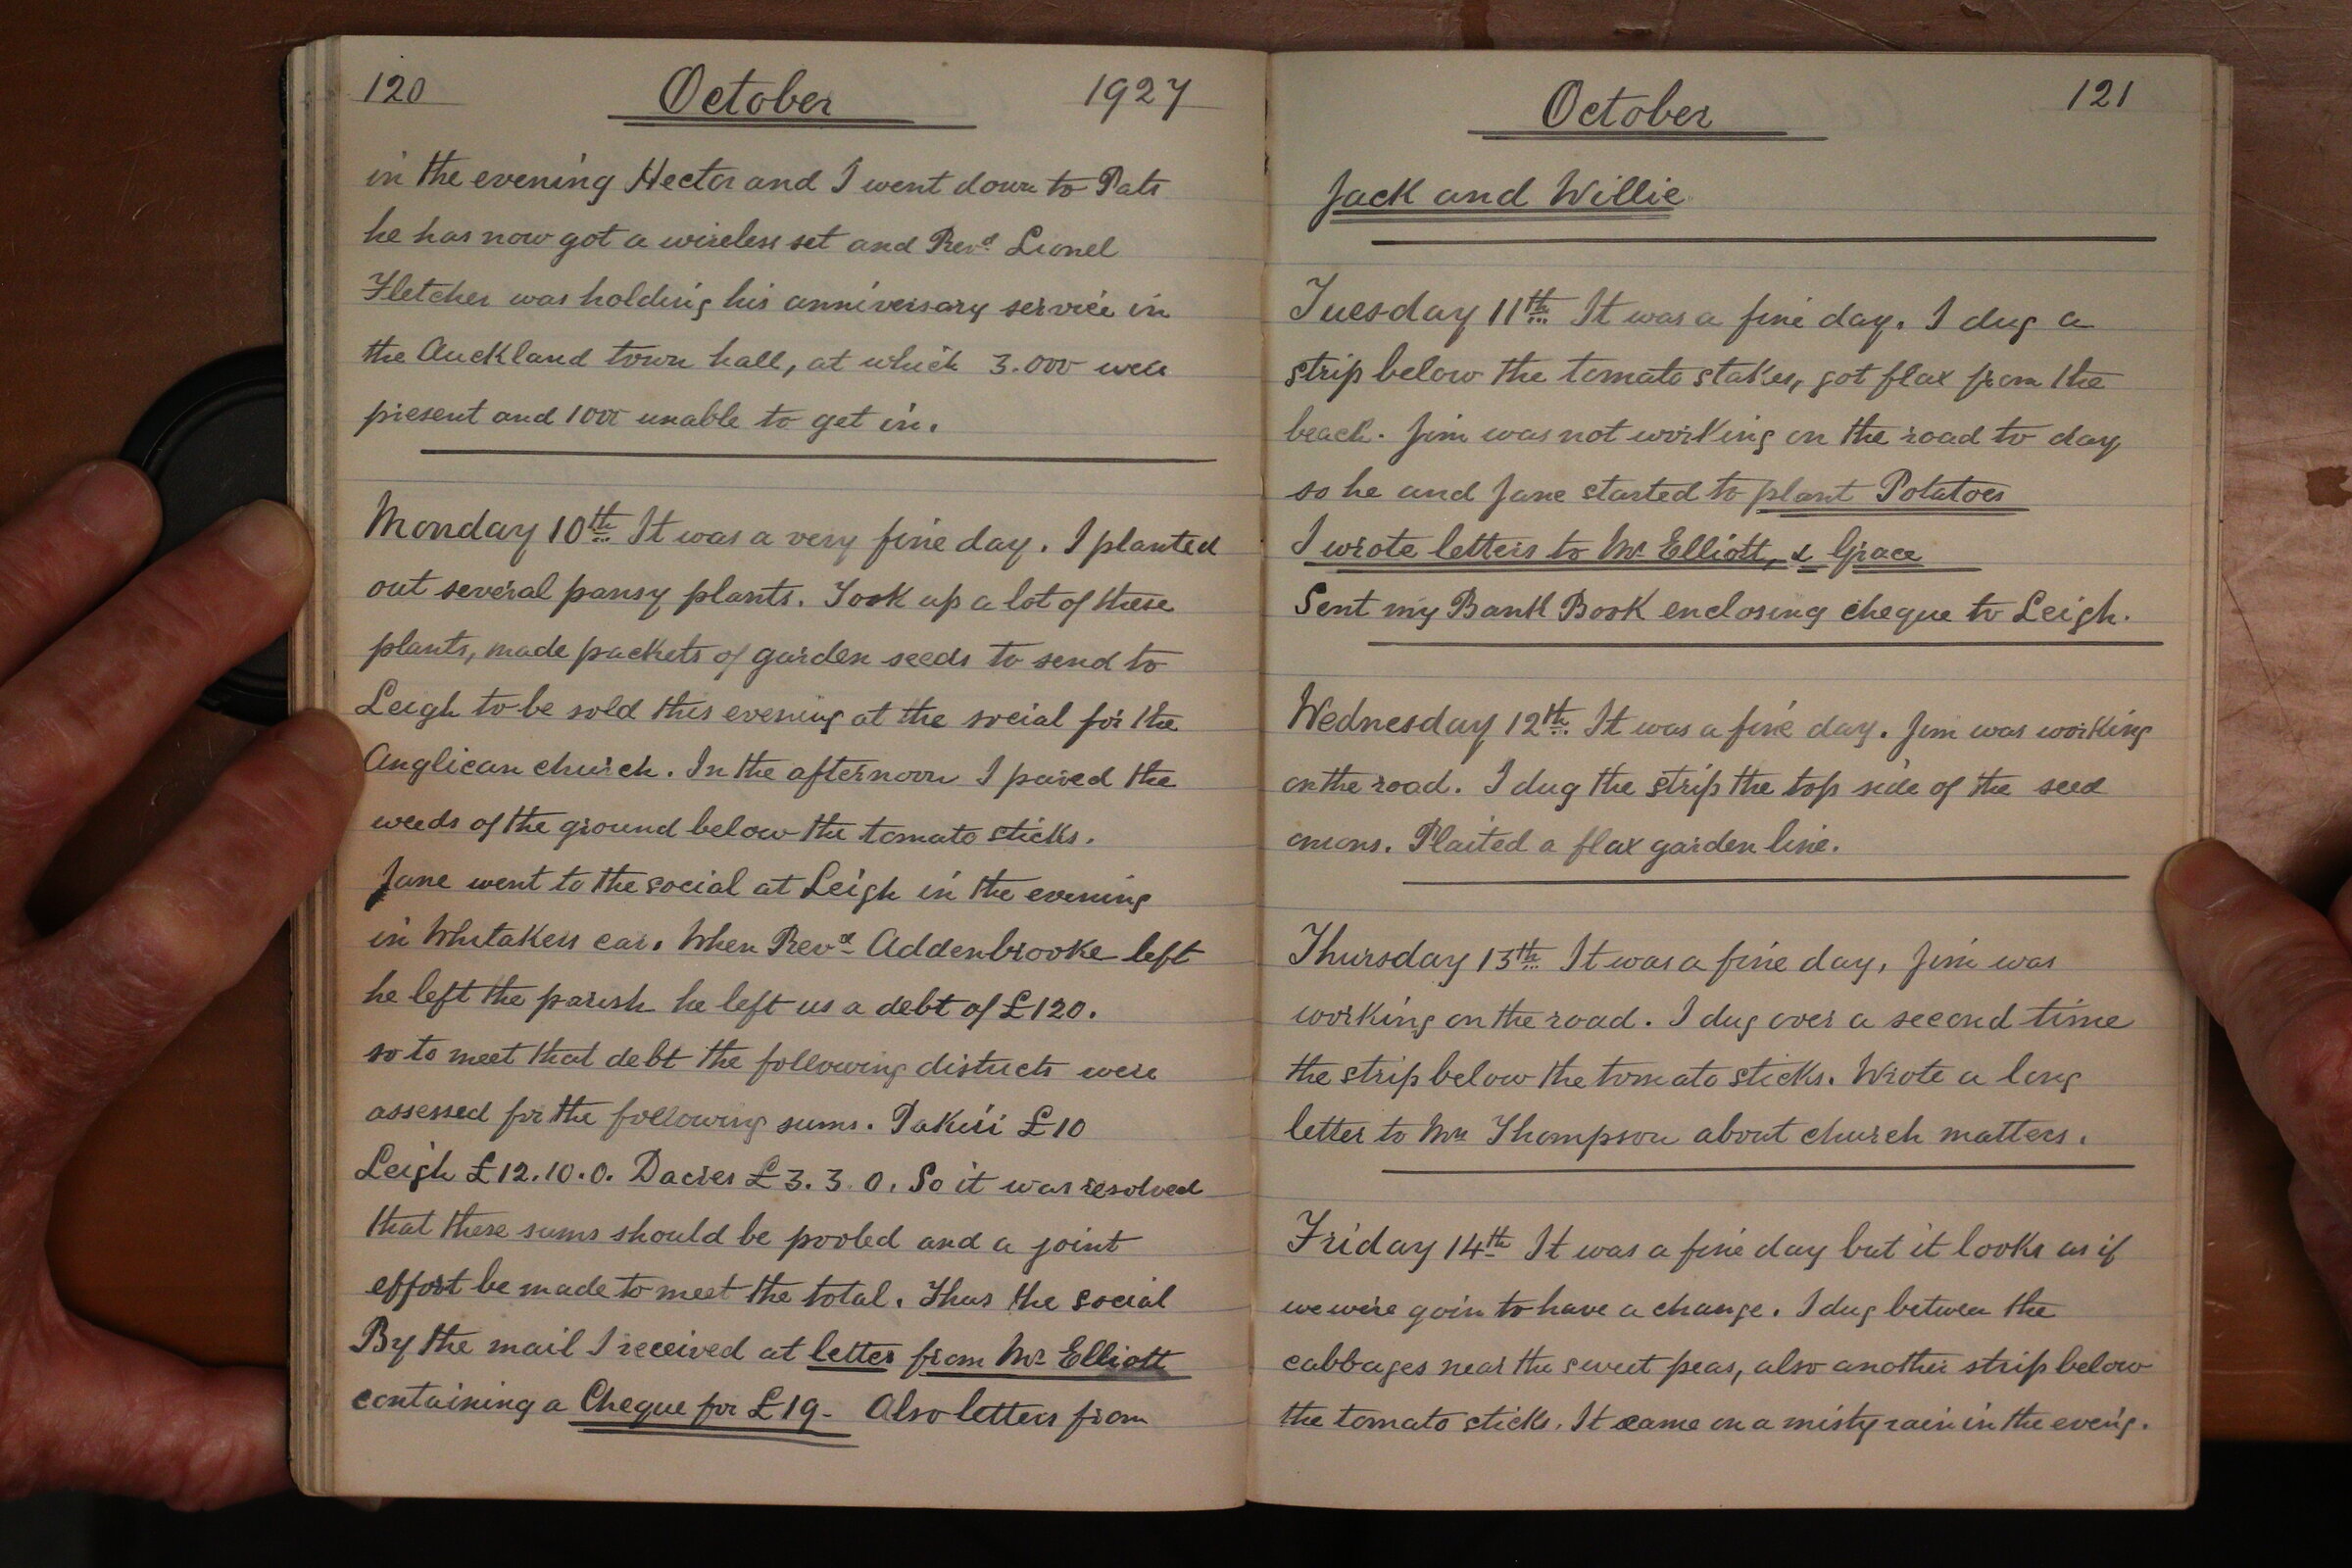 120 October 1927
in the evening Hector and I went down to Pats
he has now got a wireless set and Revd. Lionel
Fletcher was holding his anniversary service in
the Auckland town hall, at which 3.000 were
present and 1000 unable to get in.
Monday 10th It was a very fine day. I planted
out several pansy plants. Took up a lot of these
plants, made packets of garden seeds to send to
Leigh to be sold this evening at the social for the
Anglican church. In the afternoon I pared the
weeds of the ground below the tomato sticks.
Jane went to the social at Leigh in the evening
in Whitakers car. When Revd. Addenbrooke left
he left the parish he left us a debt of £120.
so to meet that debt the following districts were
assessed for the following sums. Pakiri £10
Leigh £12.10.0. Dacres £3.3.0. So it was resolved
that these sums should be pooled and a joint
effort be made to meet the total. Thus the social
By the mail I received at letter from Mr Elliott
containing a Cheque for £19- Also letters from
October 121
Jack and Willie
Tuesday 11th It was a fine day. I dug a
strip below the tomato stakes, got flax from the
beach. Jim was not working on the road to day
so he and Jane started to plant Potatoes
I wrote letters to Mr Elliott, & Grace
Sent my Bank Book enclosing cheque to Leigh.
Wednesday 12th It was a fine day. Jim was working
on the road. I dug the strip the top side of the seed
onions. Plaited a flax garden line.
Thursday 13th It was a fine day, Jim was
working on the road. I dug over a second time
the strip below the tomato sticks. Wrote a long
letter to Mr Thompson about church matters.
Friday 14th It was a fine day but it looks as if
we were goin to have a change. I dug between the
cabbages near the sweet peas, also another strip below
the tomato sticks. It came on a misty rain in the evenig.